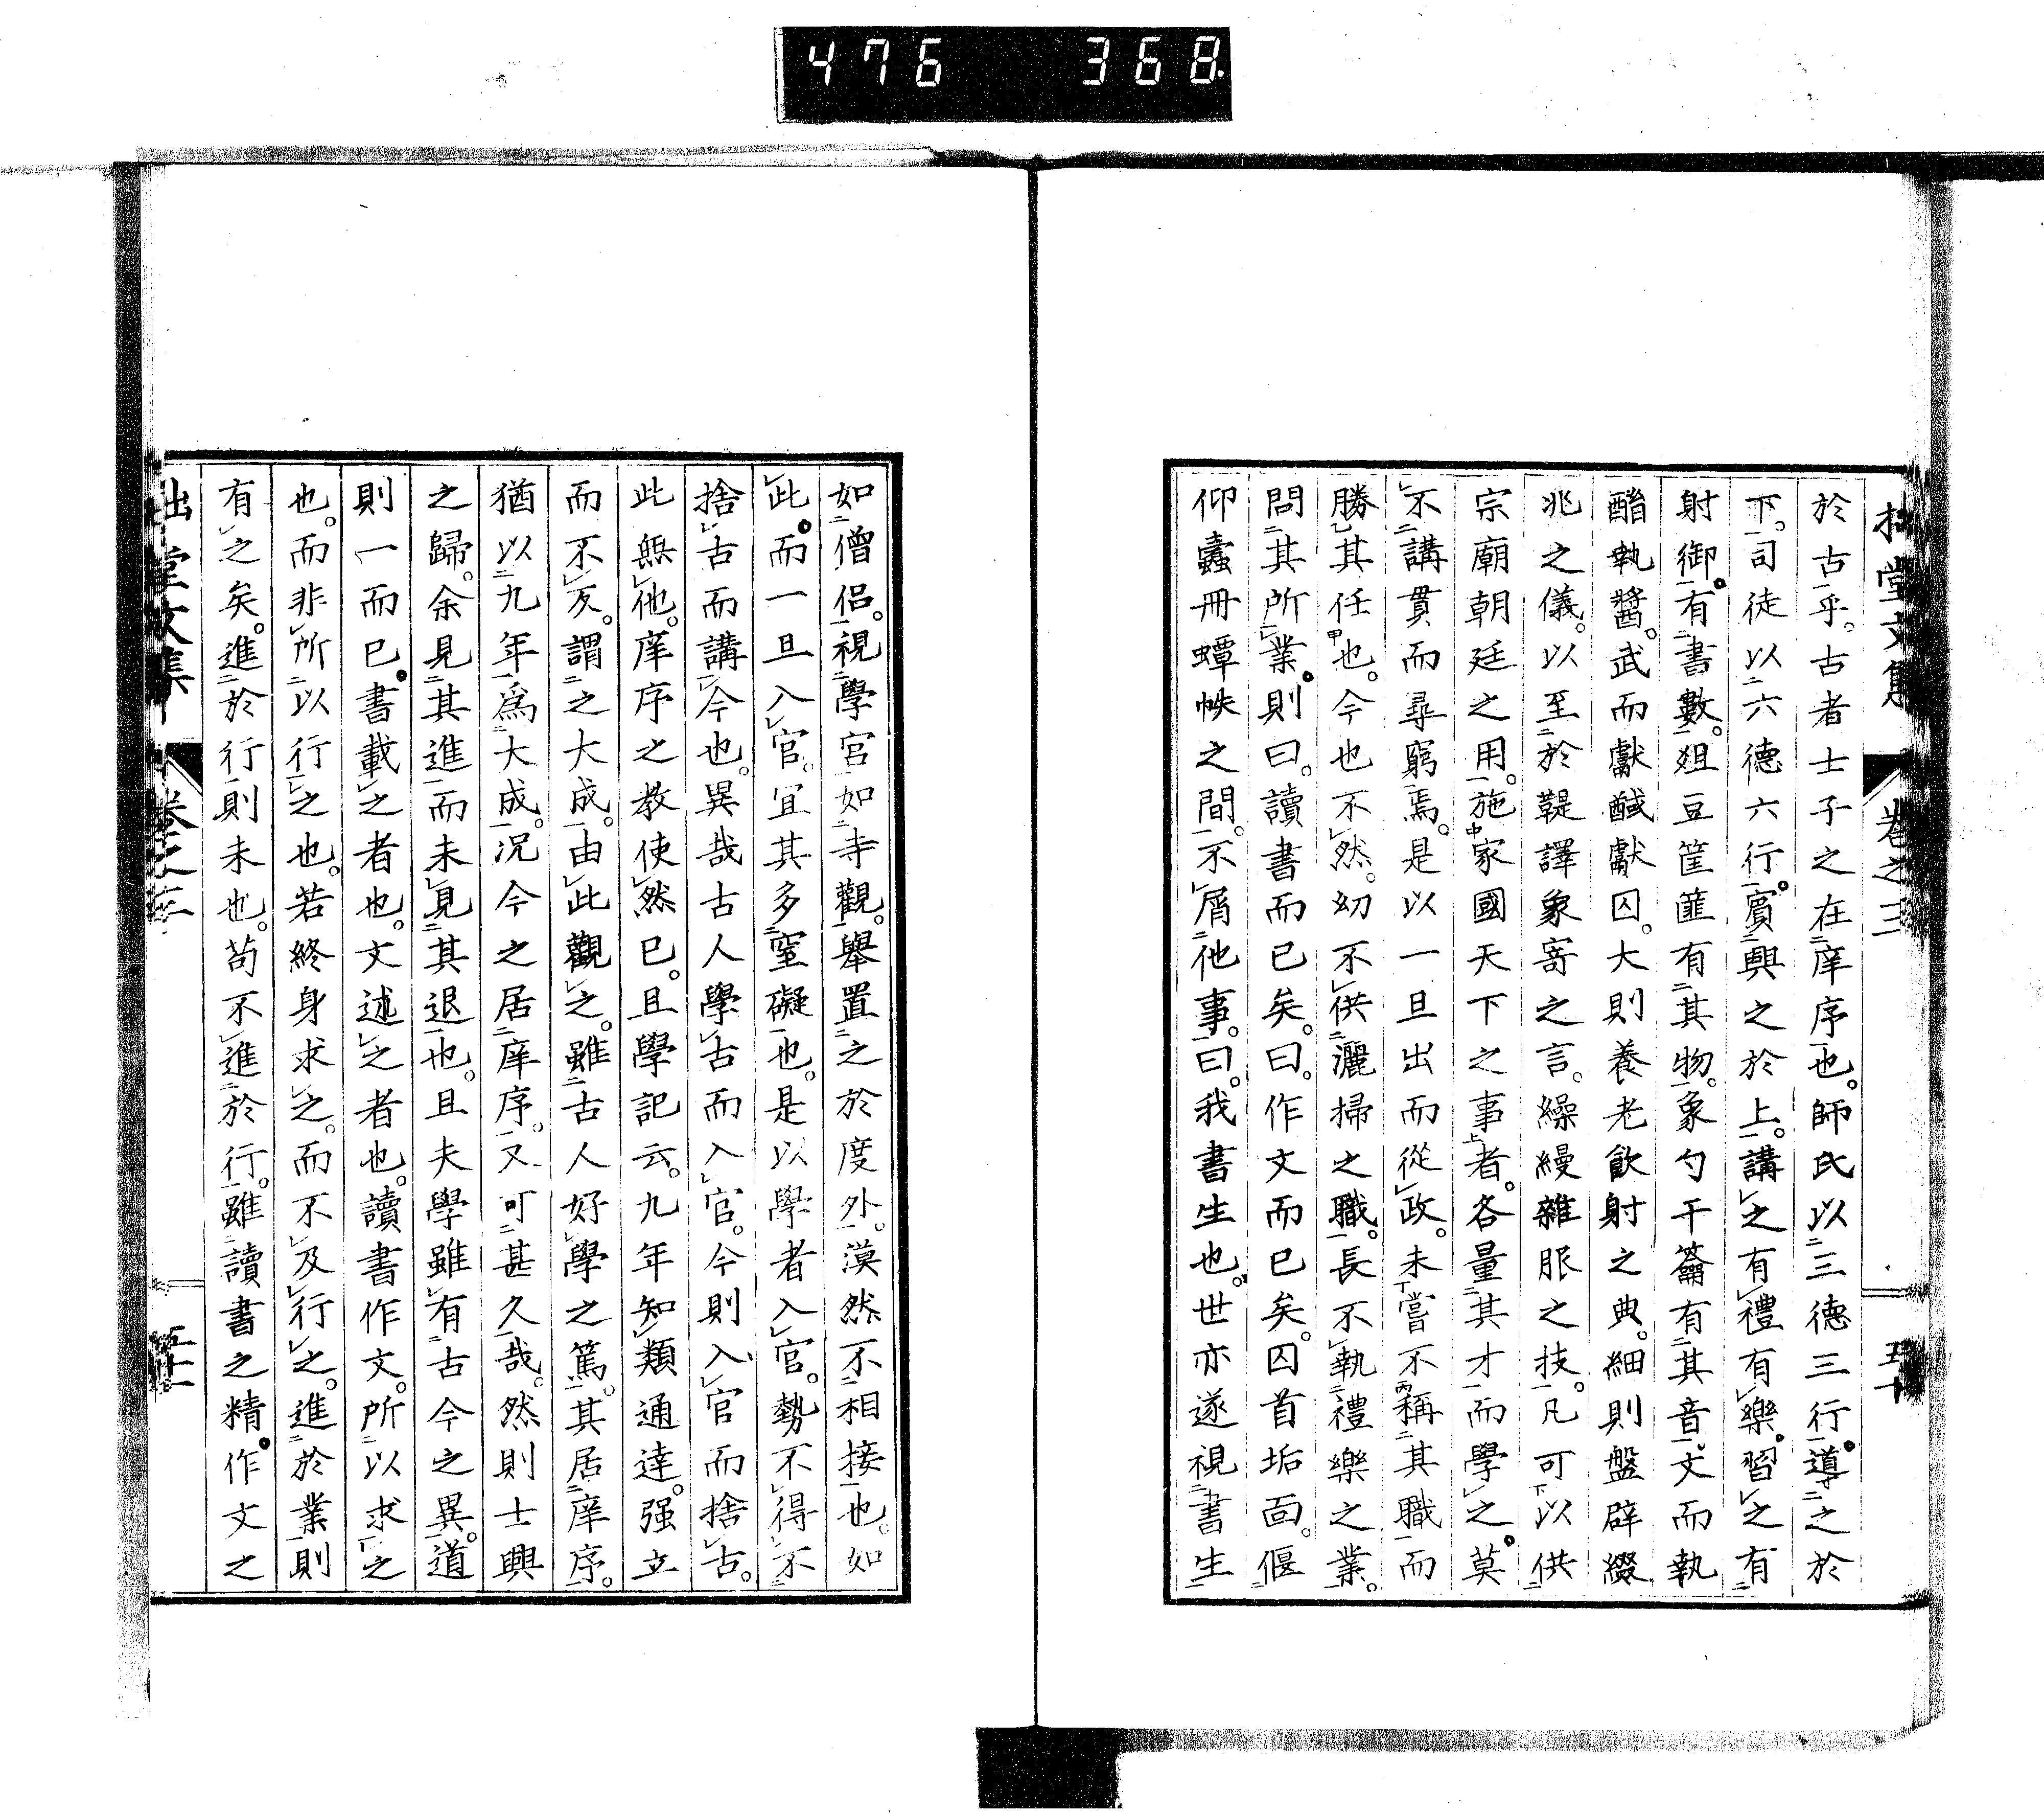 476 368
拙堂文集 卷之三 五十
於古乎。古者士子之在庠序也。師氏以三德三行。導之於
下。司徒以六德六行。賓興之於上。講之有禮有樂。習之有
射御。有書數。俎豆筐篚有其物。象勺干籥有其音。文而執
酳執醬。武而獻馘獻囚。大則養老飲射之典。細則盤辟綴
兆之儀。以至於鞮譯象寄之言。繰縵雜服之技。凡可以供
宗廟朝廷之用。施家國天下之事者。各量其才而學之。莫
不講貫而尋窮焉。是以一旦出而從政。未嘗不稱其職而
勝其任也。今也不然。幼不供灑掃之職。長不執禮樂之業。
問其所業。則曰。讀書而已矣。曰。作文而已矣。囚首垢面。偃
仰蠹冊蟫帙之間。不屑他事。曰。我書生也。世亦遂視書生
如僧侶。視學宮如寺觀。舉置之於度外。漠然不相接也。如
此。而一旦入官。宜其多窒礙也。是以學者入官。勢不得不
捨古而講今也。異哉古人學古而入官。今則入官而捨古。
此無他。庠序之教使然已。且學記云。九年知類通達。强立
而不反。謂之大成。由此觀之。雖古人好學之篤。其居庠序。
猶以九年為大成。況今之居庠序。又可甚久哉。然則士興
之歸。余見其進而未見其退也。且夫學雖有古今之異。道
則一而已。書載之者也。文述之者也。讀書作文。所以求之
也。而非所以行之也。若終身求之。而不及行之。進於業則
有之矣。進於行則未也。苟不進於行。雖讀書之精。作文之
拙堂文集 卷之三 五十一